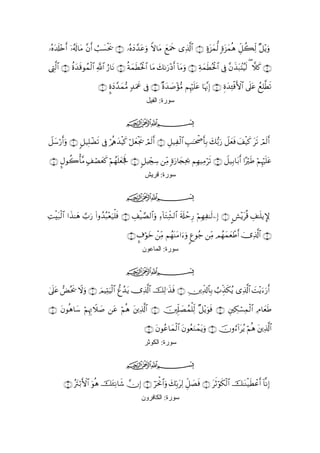 بِسۡمِ ٱللَّهِ ٱلرَّحۡمَٰنِ ٱلرَّحِيمِ
وَيۡلٞ لِّكُلِّ هُمَزَةٖ لُّمَزَةٍ ۝ ٱلَّذِي جَمَعَ مَالٗا وَعَدَّدَهُۥ ۝ يَحۡسَبُ أَنَّ مَالَهُۥٓ أَخۡلَدَهُۥ
۝ كَلَّاۖ لَيُنۢبَذَنَّ فِي ٱلۡحُطَمَةِ ۝ وَمَآ أَدۡرَىٰكَ مَا ٱلۡحُطَمَةُ ۝ نَارُ ٱللَّهِ ٱلۡمُوقَدَةُ ۝ ٱلَّتِي
تَطَّلِعُ عَلَى ٱلۡأَفۡـِٔدَةِ ۝ إِنَّهَا عَلَيۡهِم مُّؤۡصَدَةٞ ۝ فِي عَمَدٖ مُّمَدَّدَةِۭ ۝
سورة: الفيل
بِسۡمِ ٱللَّهِ ٱلرَّحۡمَٰنِ ٱلرَّحِيمِ
أَلَمۡ تَرَ كَيۡفَ فَعَلَ رَبُّكَ بِأَصۡحَٰبِ ٱلۡفِيلِ ۝ أَلَمۡ يَجۡعَلۡ كَيۡدَهُمۡ فِي تَضۡلِيلٖ ۝ وَأَرۡسَلَ
عَلَيۡهِمۡ طَيۡرًا أَبَابِيلَ ۝ تَرۡمِيهِم بِحِجَارَةٖ مِّن سِجِّيلٖ ۝ فَجَعَلَهُمۡ كَعَصۡفٖ مَّأۡكُولِۭ ۝
سورة: قريش
بِسۡمِ ٱللَّهِ ٱلرَّحۡمَٰنِ ٱلرَّحِيمِ
لِإِيلَٰفِ قُرَيۡشٍ ۝ إِۦلَٰفِهِمۡ رِحۡلَةَ ٱلشِّتَآءِ وَٱلصَّيۡفِ ۝ فَلۡيَعۡبُدُواْ رَبَّ هَٰذَا ٱلۡبَيۡتِ
۝ ٱلَّذِيٓ أَطۡعَمَهُم مِّن جُوعٖ وَءَامَنَهُم مِّنۡ خَوۡفِۭ ۝
سورة: الماعون
بِسۡمِ ٱللَّهِ ٱلرَّحۡمَٰنِ ٱلرَّحِيمِ
أَرَءَيۡتَ ٱلَّذِي يُكَذِّبُ بِٱلدِّينِ ۝ فَذَٰلِكَ ٱلَّذِي يَدُعُّ ٱلۡيَتِيمَ ۝ وَلَا يَحُضُّ عَلَىٰ
طَعَامِ ٱلۡمِسۡكِينِ ۝ فَوَيۡلٞ لِّلۡمُصَلِّينَ ۝ ٱلَّذِينَ هُمۡ عَن صَلَاتِهِمۡ سَاهُونَ ۝
ٱلَّذِينَ هُمۡ يُرَآءُونَ ۝ وَيَمۡنَعُونَ ٱلۡمَاعُونَ ۝
سورة: الكوثر
بِسۡمِ ٱللَّهِ ٱلرَّحۡمَٰنِ ٱلرَّحِيمِ
إِنَّآ أَعۡطَيۡنَٰكَ ٱلۡكَوۡثَرَ ۝ فَصَلِّ لِرَبِّكَ وَٱنۡحَرۡ ۝ إِنَّ شَانِئَكَ هُوَ ٱلۡأَبۡتَرُ ۝
سورة: الكافرون